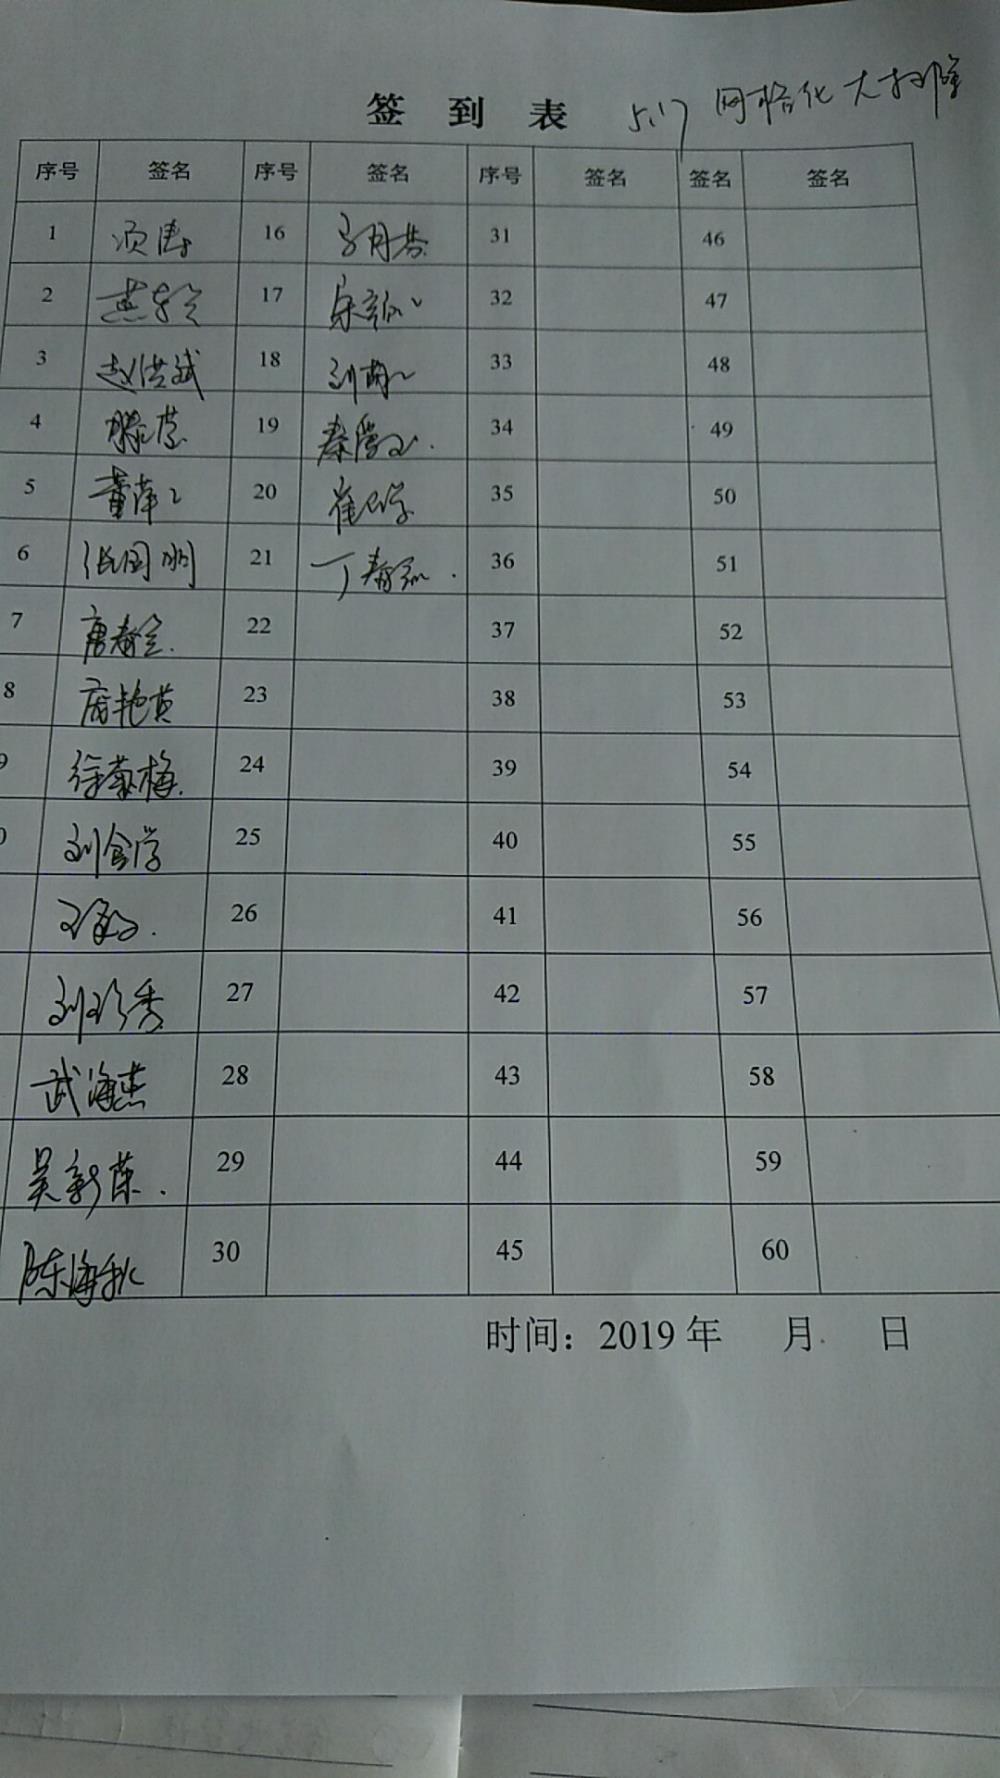 签到表 5.17 网格化大扫除
序号 签名 序号 签名 序号 签名 签名 签名
1 项涛 16 月芬 31 46
2 燕 17 宋 32 47
3 赵洪斌 18 刘 33 48
4 滕 19 秦 34 49
5 董萍 20 崔学 35 50
6 张国明 21 丁春 36 51
7 唐春兰 22 37 52
8 庞艳英 23 38 53
9 徐菊梅 24 39 54
0 刘会学 25 40 55
王 26 41 56
刘珍秀 27 42 57
武海燕 28 43 58
吴新荣 29 44 59
陈海秋 30 45 60
时间：2019年 月 日